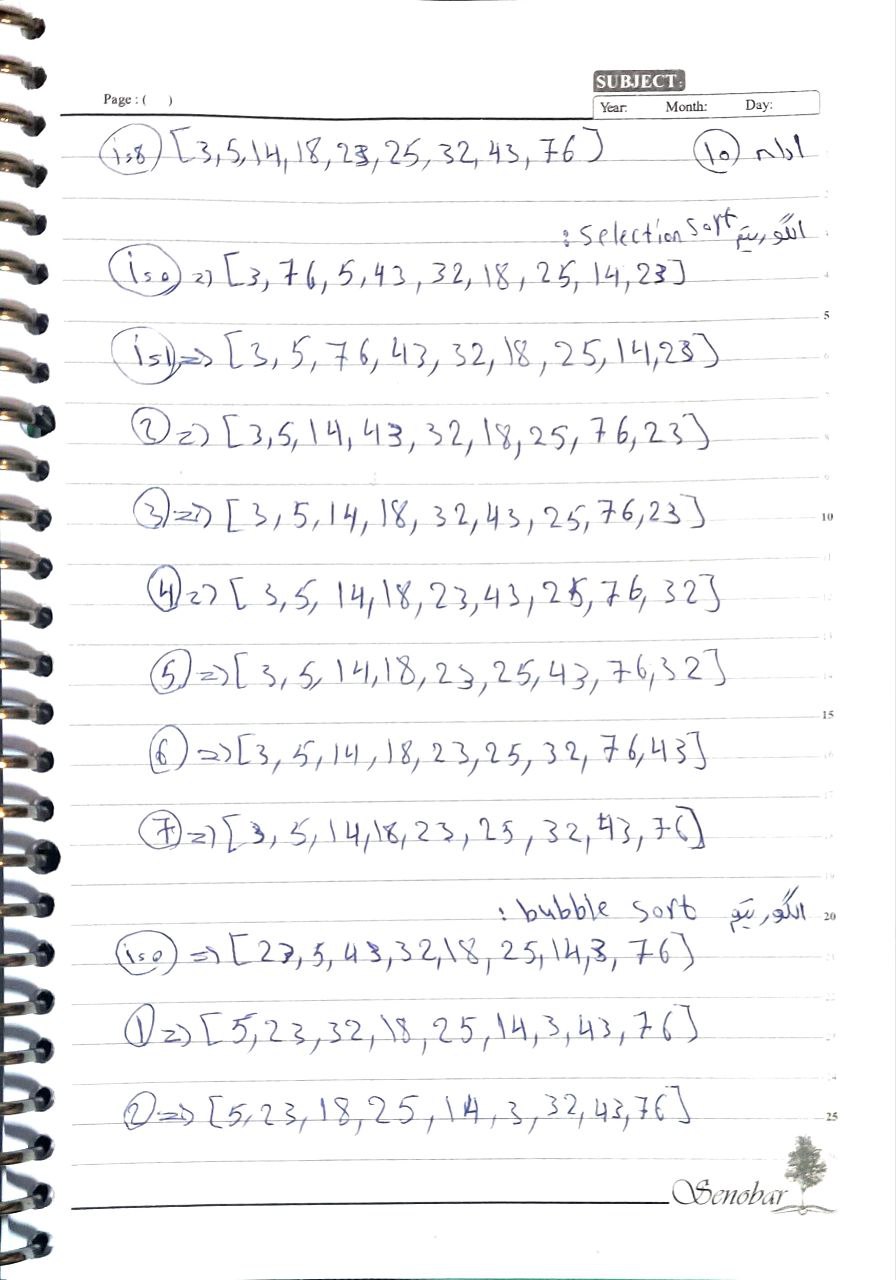 SUBJECT:
Page : ( )
Year: Month: Day:
ادامه 10
i=8 [3,5,14,18,23,25,32,43,76]
الگوریتم selection sort :
i=0 => [3,76,5,43,32,18,25,14,23]
i=1 => [3,5,76,43,32,18,25,14,23]
2 => [3,5,14,43,32,18,25,76,23]
3 => [3,5,14,18,32,43,25,76,23]
4 => [3,5,14,18,23,43,25,76,32]
5 => [3,5,14,18,23,25,43,76,32]
6 => [3,5,14,18,23,25,32,76,43]
7 => [3,5,14,18,23,25,32,43,76]
الگوریتم bubble sort :
i=0 => [23,5,43,32,18,25,14,3,76]
1 => [5,23,32,18,25,14,3,43,76]
2 => [5,23,18,25,14,3,32,43,76]
5
10
15
20
25
Senobar